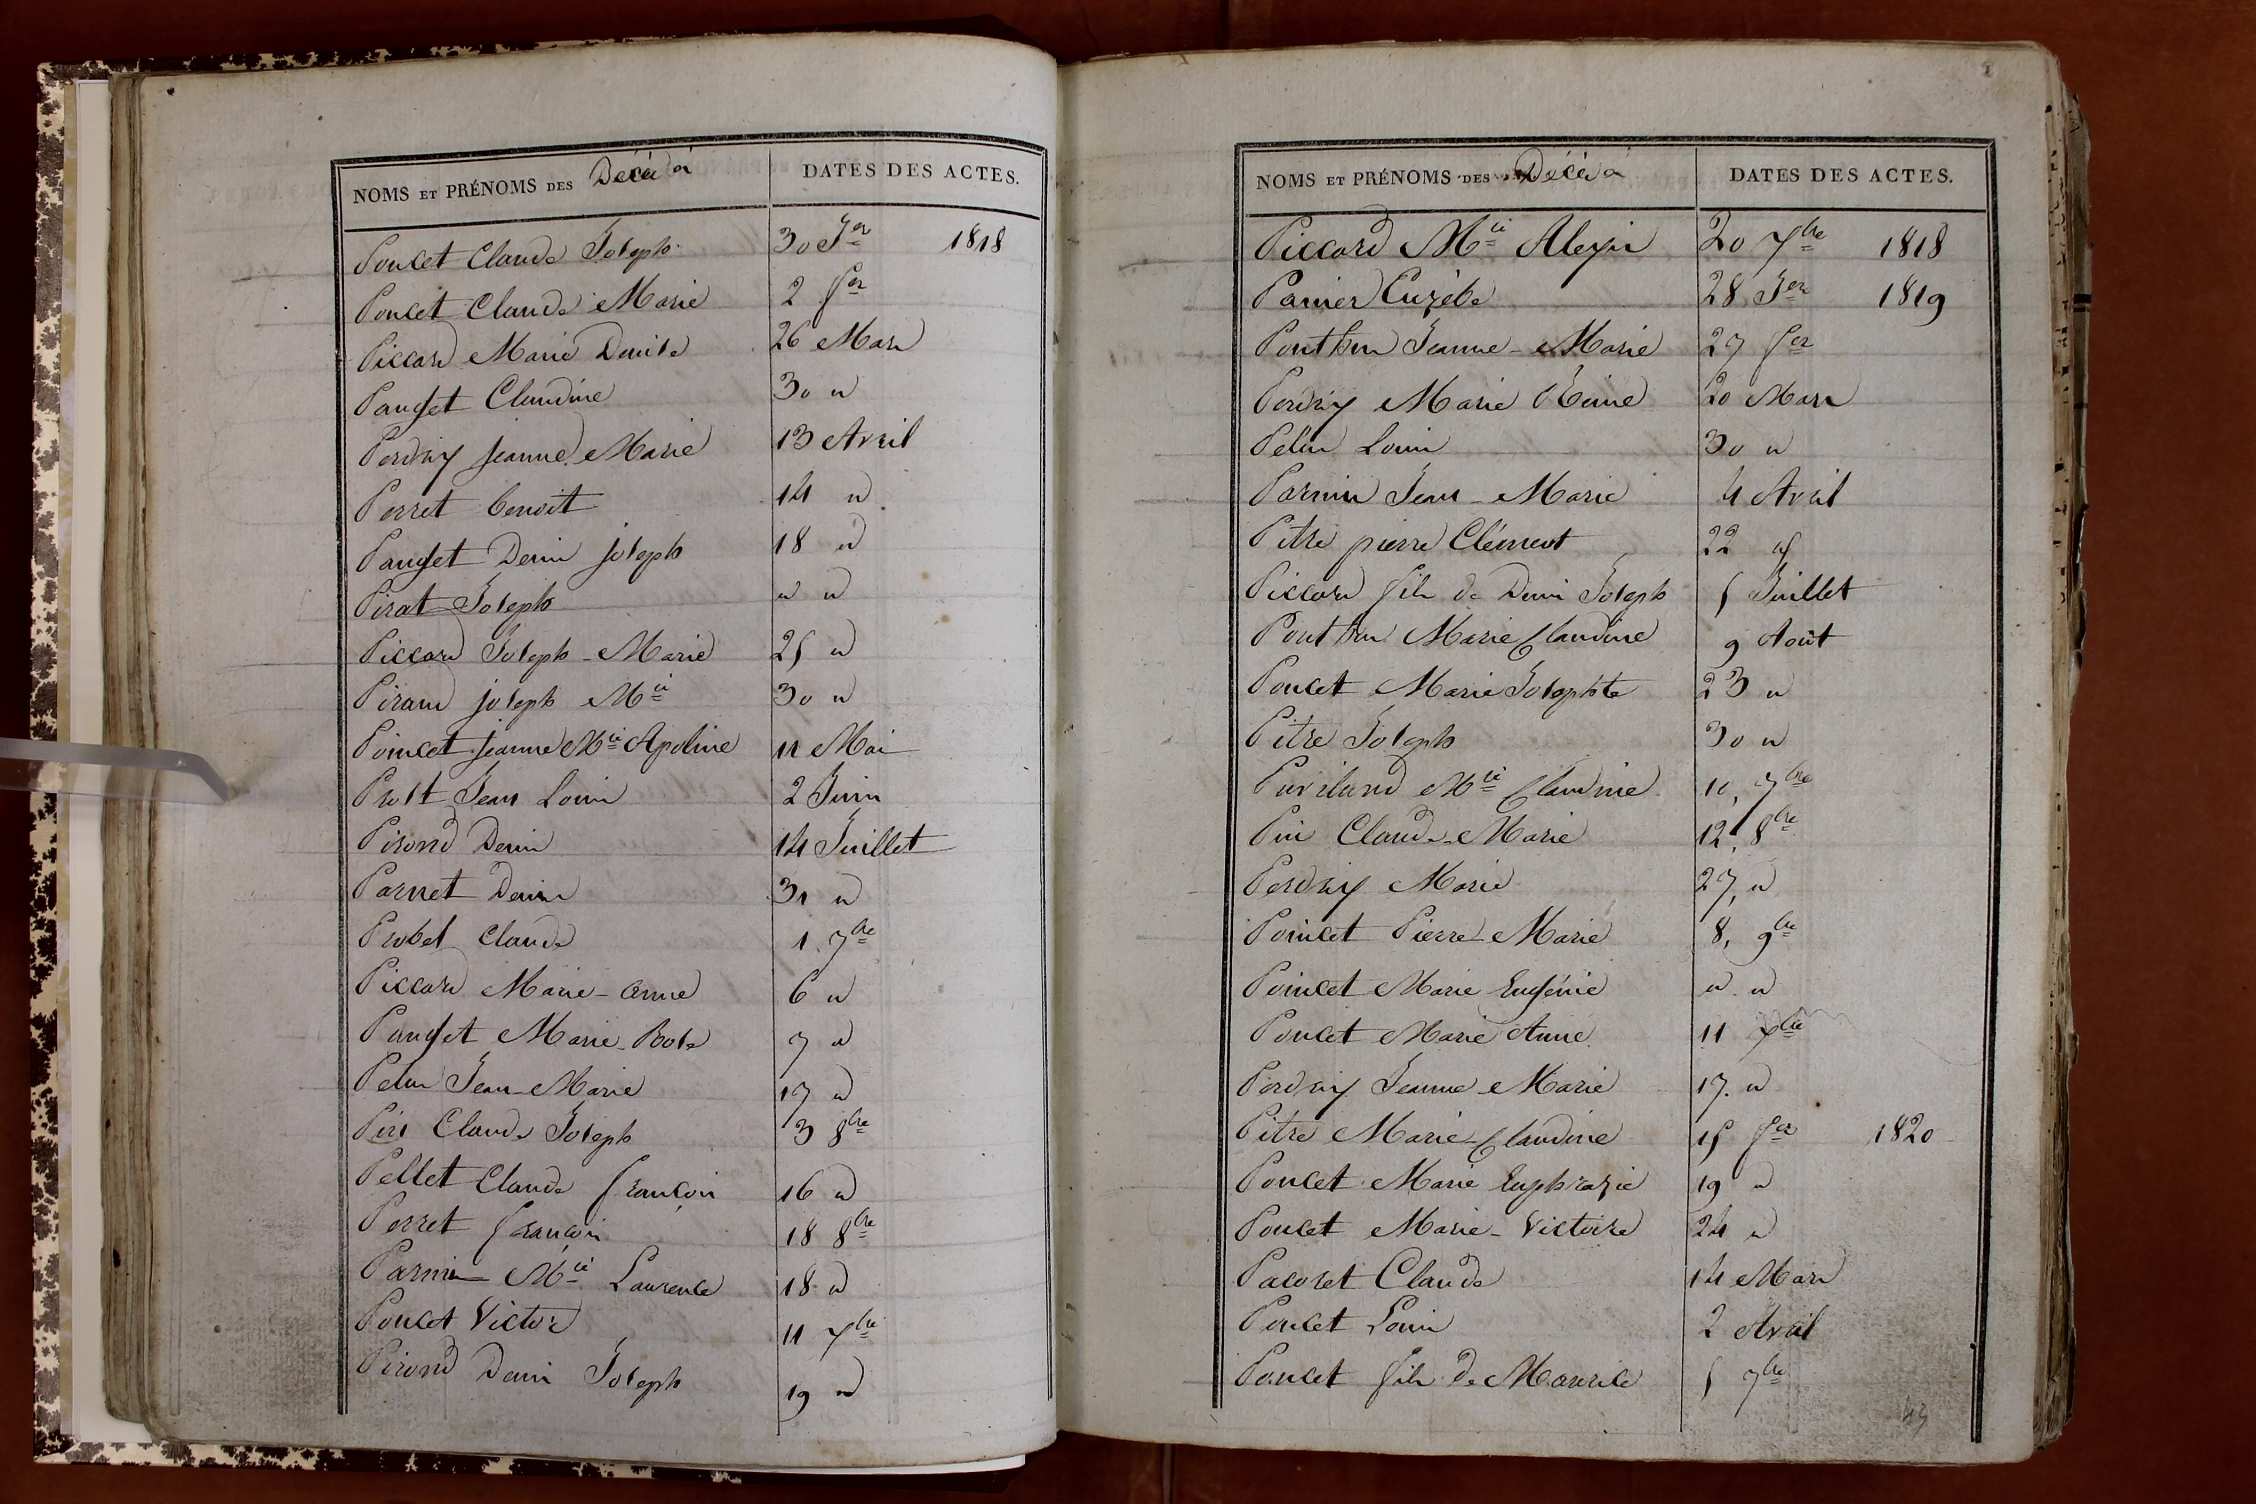 NOMS ET PRÉNOMS DES Décédés DATES DES ACTES.
Poncet Claude Joseph 30 Jer 1818
Poncet Claude Marie 2 fer
Piccard Marie Denise 26 Mars
Pauget Claudine 30 "
Perdrix jeanne Marie 13 Avril
Perret benoit 14 "
Pauget Denis joseph 18 "
Pirat Joseph " "
Piccard Joseph-Marie 25 "
Piraud joseph Mie 30 "
Poncet jeanne Mie Apoline 11 Mai
Prost Jean Louis 2 Juin
Pirond Denis 14 Juillet
Parnet Denise 31 "
Probet Claude 1 7bre
Piccard Marie-anne 6 "
Pauget Marie-Rose 7 "
Jean-Marie 17 "
Claude Joseph 3 8bre
Pellet Claude françois 16 "
Perret françois 18 8bre
Mie Laurence 18 "
Poncet Victor 11 Xbre
Pirond Denis Joseph 19 "
NOMS ET PRÉNOMS DES Décédés DATES DES ACTES.
Piccard Mie Alexis 20 Xbre 1818
Panier Euzébe 28 Jer 1819
Ponthus Jeanne-Marie 27 fer
Perdrix Marie Reine 20 Mars
Louis 30 "
Jean-Marie 4 Avril
Pitre pierre Clément 22 "
Piccard fils de Denis Joseph 5 Juillet
Ponthus Marie Claudine 9 Août
Poncet Marie Josephte 23 "
Pitre Joseph 30 "
Mie Claudine 10, 7bre
Claude-Marie 12, 8bre
Perdrix Marie 27, "
Poncet Pierre-Marie 8, 9bre
Poncet Marie Eugénie " "
Poncet Marie Anne 11 Xbre
Perdrix Jeanne-Marie 17. "
Pitre Marie-Claudine 15 fer 1820
Poncet Marie Euphrazie 19 "
Poncet Marie-Victoire 24 "
Pacoret Claude 14 Mars
Poncet Louis 2 Avril
Poncet fils de Maurice 5 7bre
49